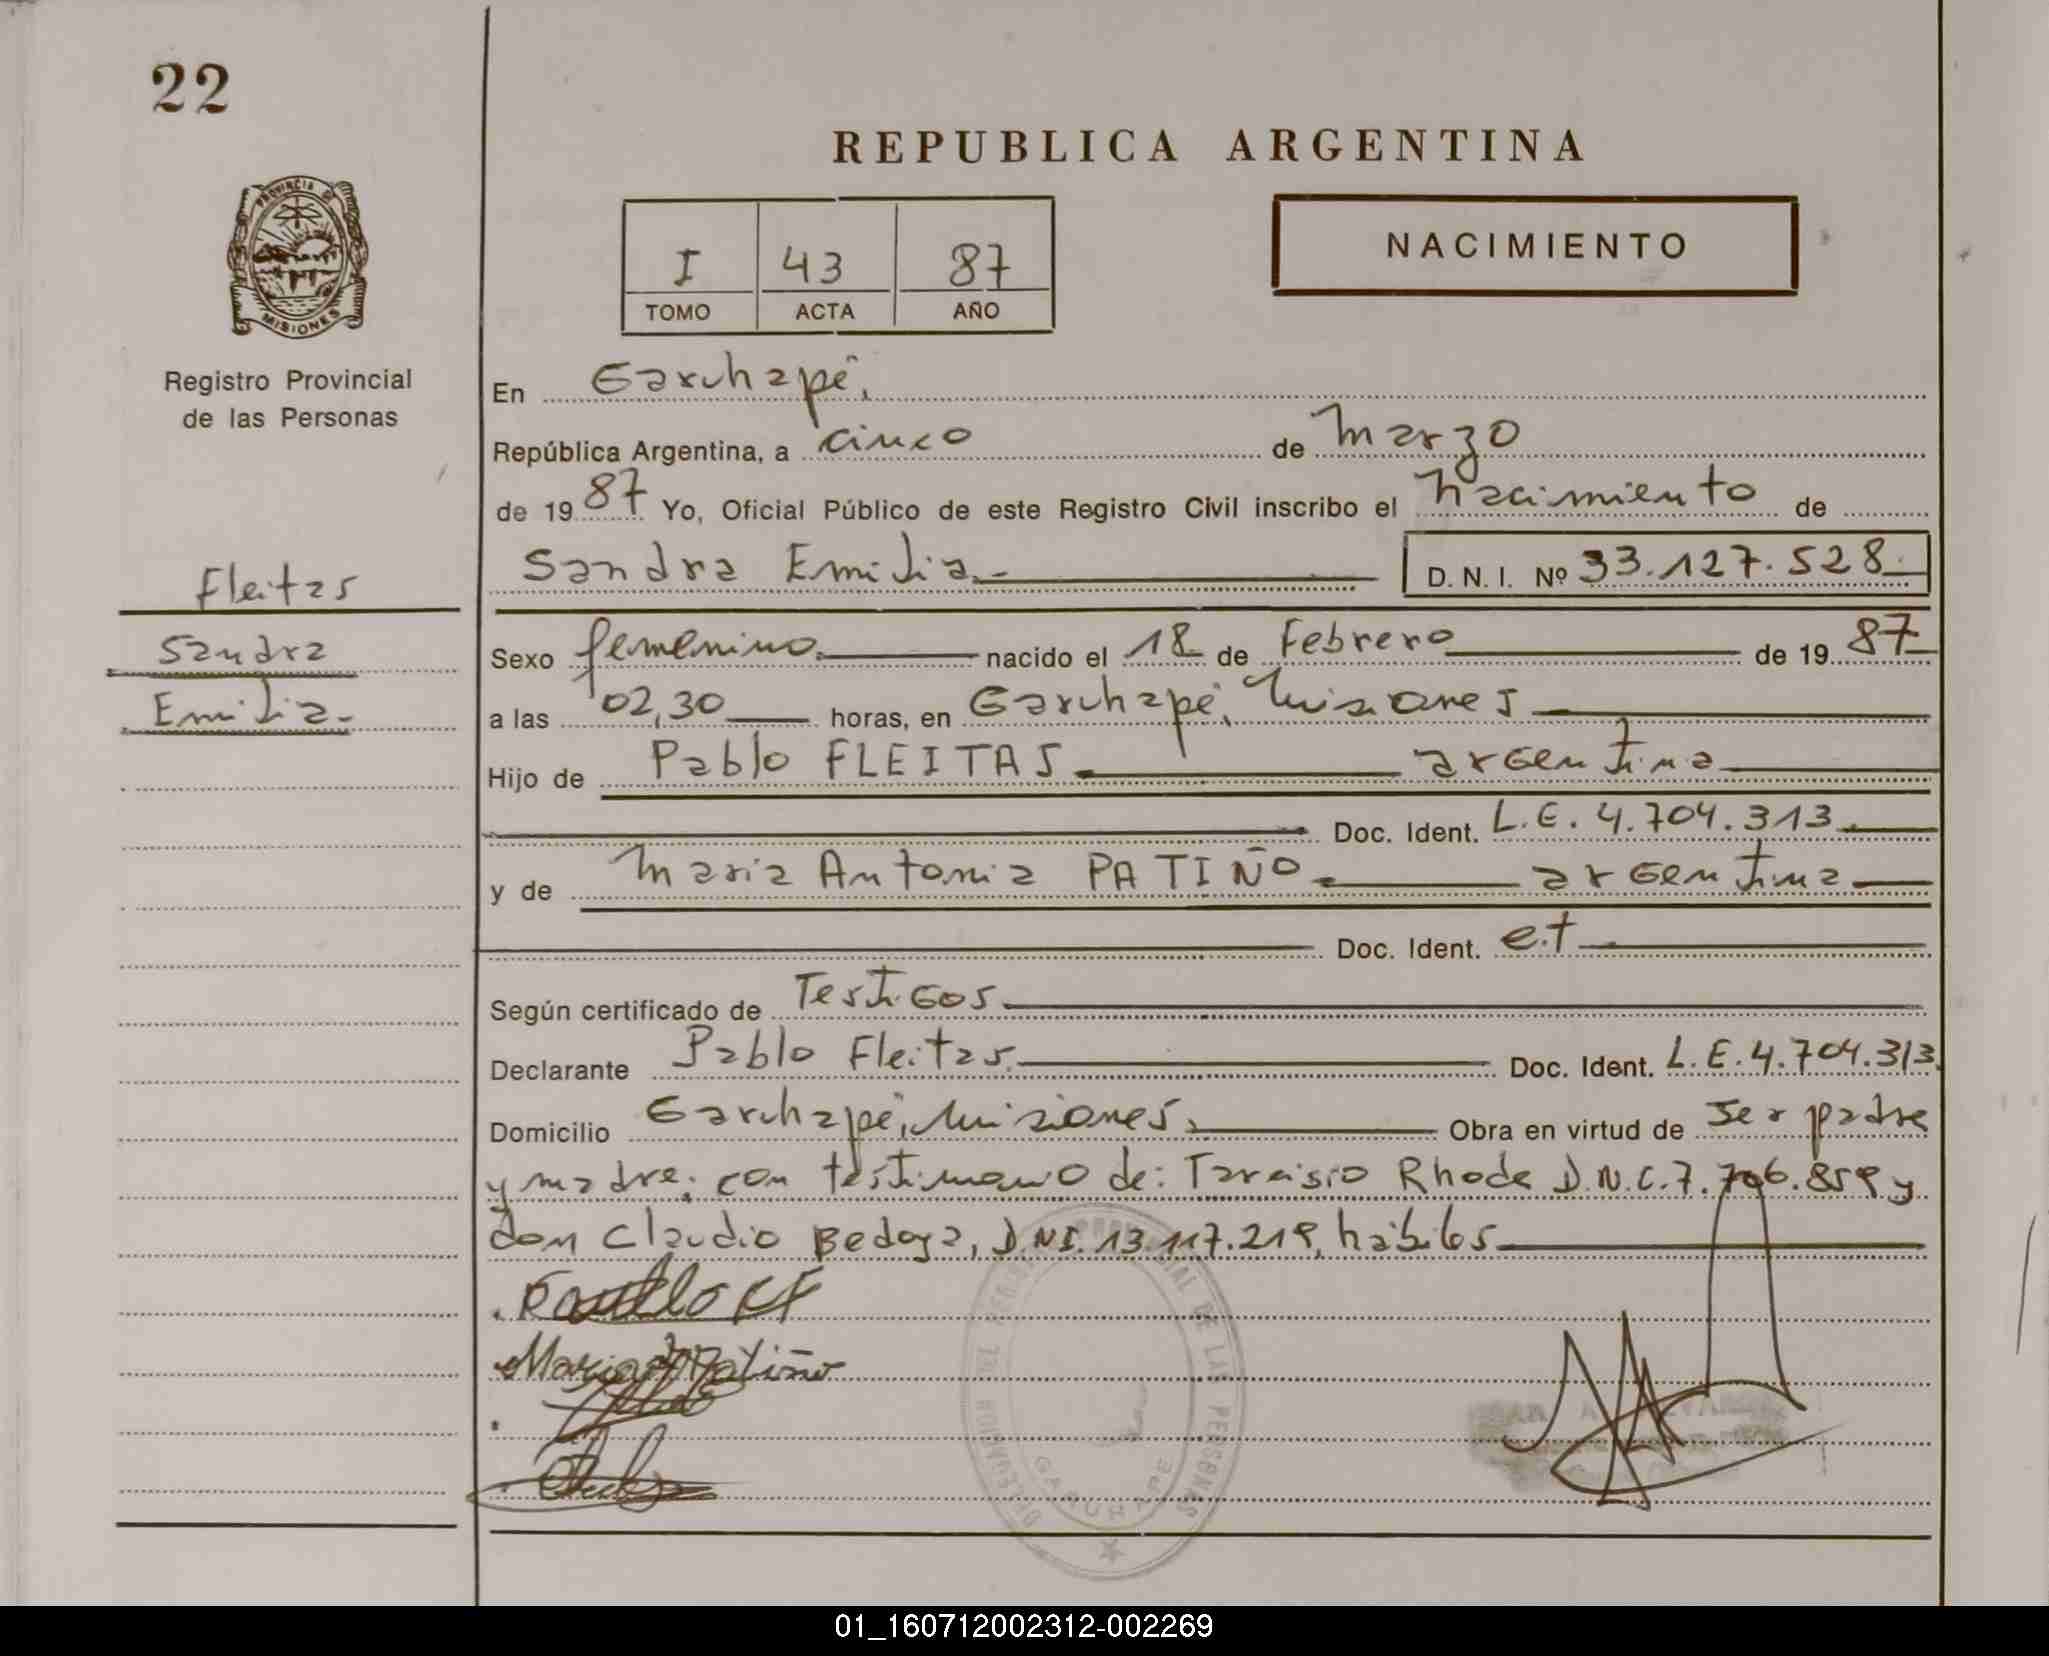 22
REPUBLICA ARGENTINA
PROVINCIA DE
MISIONES
I 43 87
TOMO ACTA AÑO
NACIMIENTO
Registro Provincial
de las Personas
En Garuhapé,
República Argentina, a cinco de Marzo
de 1987 Yo, Oficial Público de este Registro Civil inscribo el nacimiento de
Sandra Emilia.- D. N. I. Nº 33.127.528
Fleitas
Sandra
Emilia.-
Sexo femenino. nacido el 18 de Febrero de 1987
a las 02,30 horas, en Garuhapé, Misiones
Hijo de Pablo FLEITAS. argentina
Doc. Ident. L.E. 4.704.313.
y de Maria Antonia PATIÑO. argentina
Doc. Ident. e.t
Según certificado de Testigos.
Declarante Pablo Fleitas. Doc. Ident. L.E. 4.704.313.
Domicilio Garuhapé, Misiones. Obra en virtud de ser padre
y madre; con testimonio de: Tarcisio Rhode D.N.C. 7.706.859 y
don Claudio Bedoya, D.N.I. 13.117.219, hábiles
Maria A Patiño
DELEGACION DEL REGISTRO PROVINCIAL DE LAS PERSONAS
GARUHAPE
01_160712002312-002269